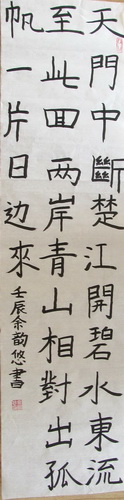 天門中斷楚江開碧水東流
至此回兩岸青山相對出孤
帆一片日边來
壬辰余韵悠書